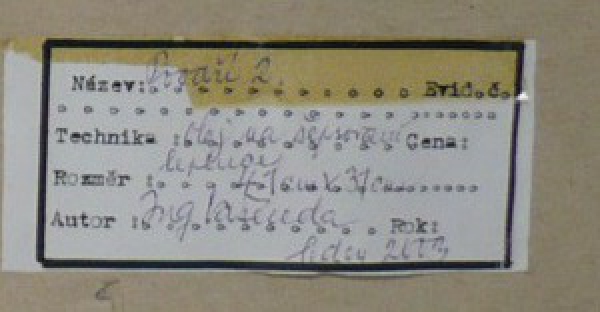 Název: Podří 2. Evid.č.
Technika : olej na šepsované Cena:
lepence
Rozměr : 47 cm x 37 cm
Autor : Ing Rok:
leden 2003